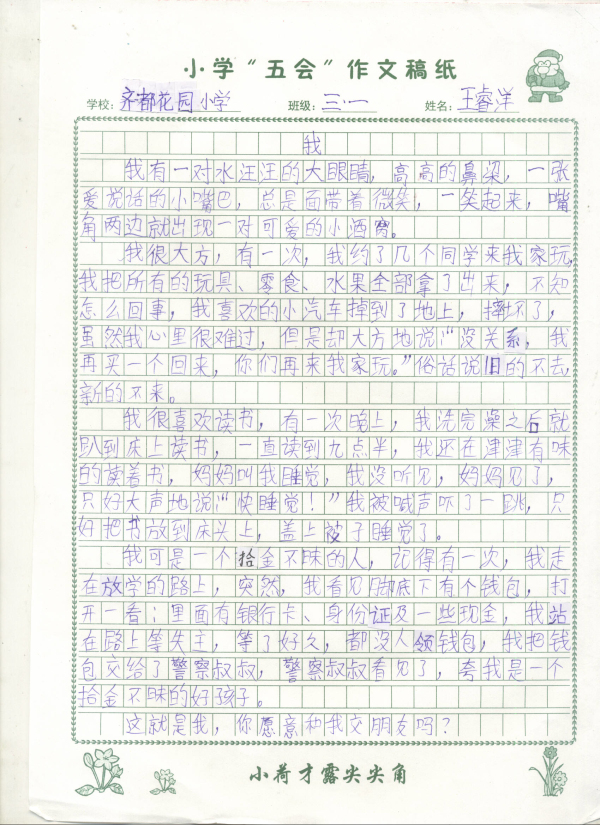 小学“五会”作文稿纸
学校：齐都花园小学 班级：三.一 姓名：王睿洋
我
我有一对水汪汪的大眼睛，高高的鼻梁，一张
爱说话的小嘴巴，总是面带着微笑，一笑起来，嘴
角两边就出现一对可爱的小酒窝。
我很大方，有一次，我约了几个同学来我家玩，
我把所有的玩具、零食、水果全部拿了出来，不知
怎么回事，我喜欢的小汽车掉到了地上，摔坏了，
虽然我心里很难过，但是却大方地说：“没关系，我
再买一个回来，你们再来我家玩。”俗话说旧的不去，
新的不来。
我很喜欢读书，有一次晚上，我洗完澡之后就
趴到床上读书，一直读到九点半，我还在津津有味
的读着书，妈妈叫我睡觉，我没听见，妈妈见了，
只好大声地说：“快睡觉！”我被喊声吓了一跳，只
好把书放到床头上，盖上被子睡觉了。
我可是一个拾金不昧的人，记得有一次，我走
在放学的路上，突然，我看见脚底下有个钱包，打
开一看：里面有银行卡、身份证及一些现金，我站
在路上等失主，等了好久，都没人领钱包，我把钱
包交给了警察叔叔，警察叔叔看见了，夸我是一个
拾金不昧的好孩子。
这就是我，你愿意和我交朋友吗？
小荷才露尖尖角